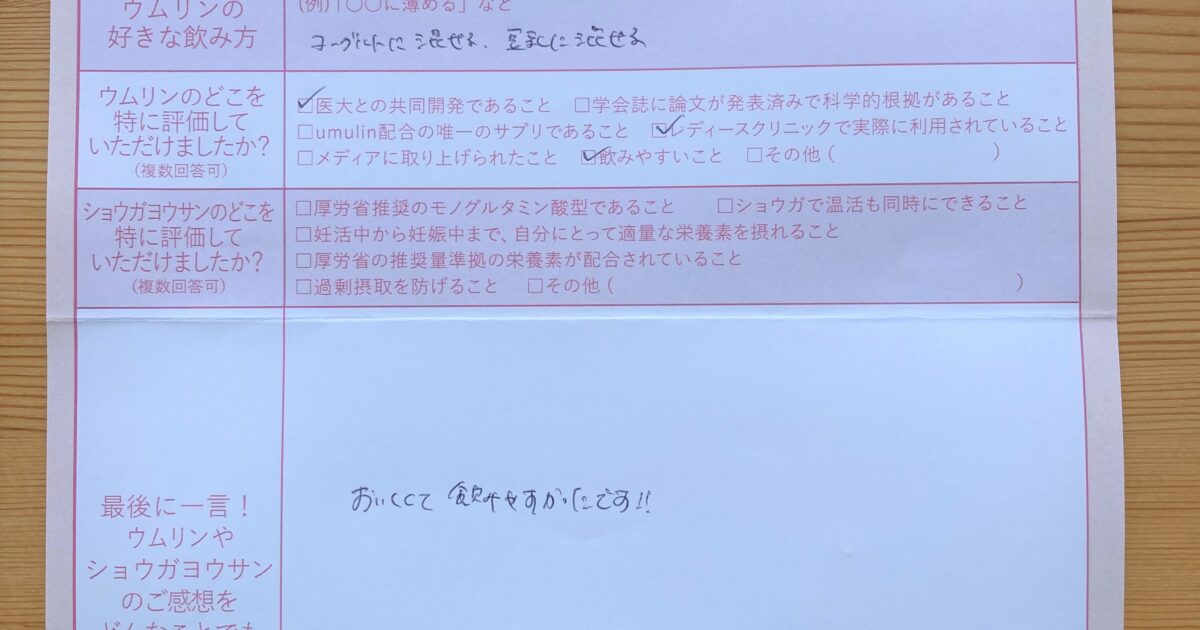 ウムリンの
好きな飲み方
(例)「〇〇に薄める」など
ヨーグルトに混ぜる、豆乳に混ぜる
ウムリンのどこを
特に評価して
いただけましたか?
(複数回答可)
医大との共同開発であること □学会誌に論文が発表済みで科学的根拠があること
□umulin配合の唯一のサプリであること レディースクリニックで実際に利用されていること
□メディアに取り上げられたこと 飲みやすいこと □その他 ( )
ショウガヨウサンのどこを
特に評価して
いただけましたか?
(複数回答可)
□厚労省推奨のモノグルタミン酸型であること □ショウガで温活も同時にできること
□妊活中から妊娠中まで、自分にとって適量な栄養素を摂れること
□厚労省の推奨量準拠の栄養素が配合されていること
□過剰摂取を防げること □その他 ( )
最後に一言!
ウムリンや
ショウガヨウサン
のご感想を
どんなことでも
おいしくて飲みやすかったです!!